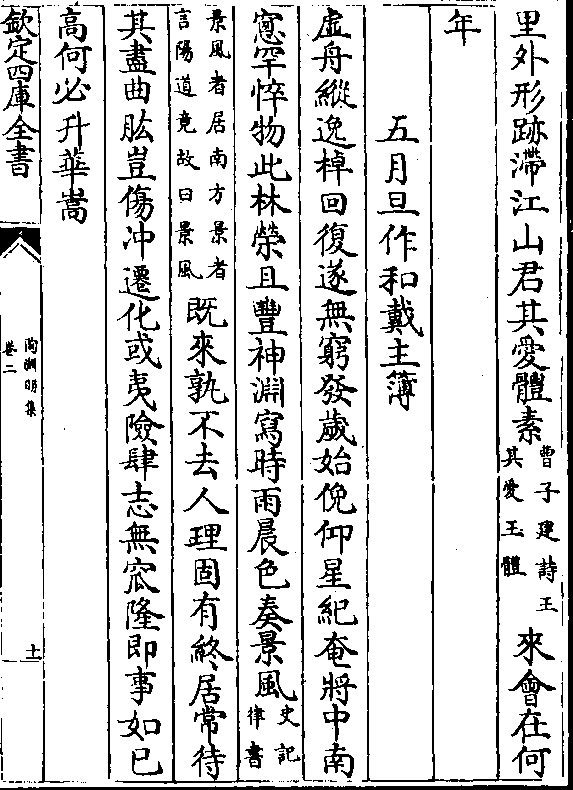 里外形跡滯江山君其愛體素曹子建詩王其愛玉體來會在何
年
五月旦作和戴主簿
虛舟縱逸棹回復遂無窮發歲始俛仰星紀奄將中南
窻罕悴物此林榮且豐神淵寫時雨晨色奏景風史記律書
景風者居南方景者言陽道竟故曰景風既來孰不去人理固有終居常待
其盡曲肱豈傷冲遷化或夷險肆志無窊隆即事如已
高何必升華嵩
欽定四庫全書
陶淵明集
卷二
十一